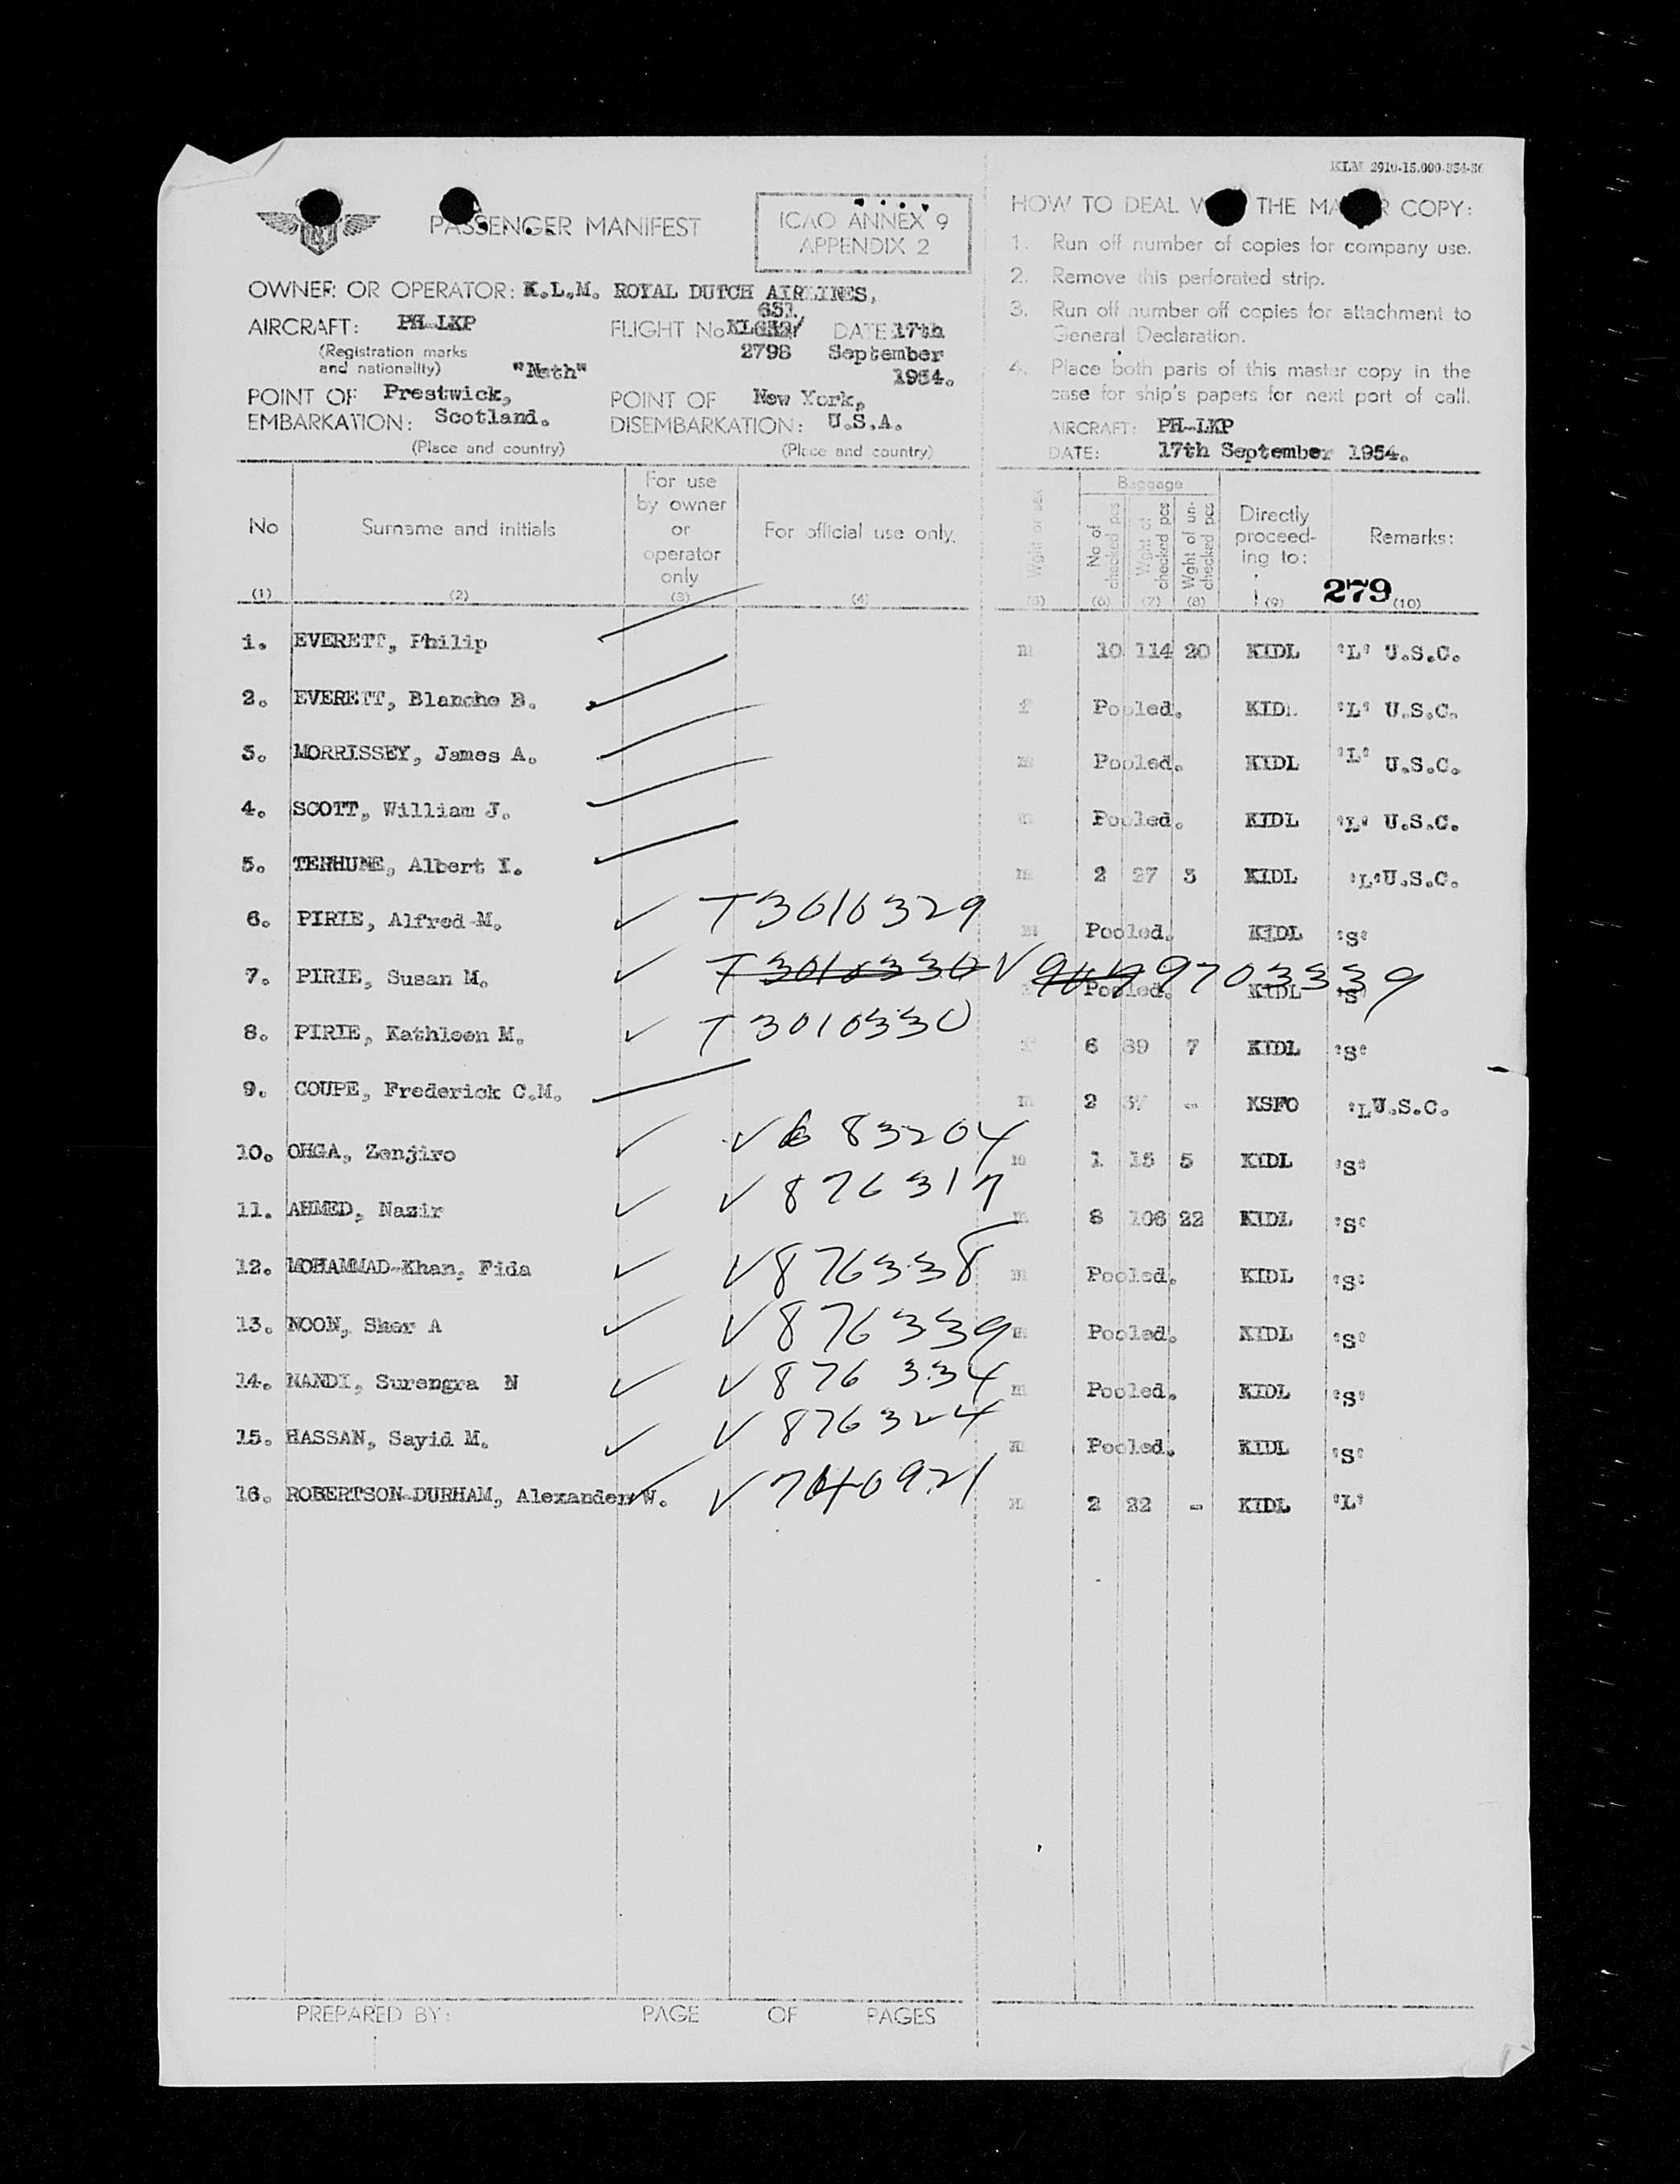 KLM 2910-15.000-854-56
PASSENGER MANIFEST
ICAO ANNEX 9
APPENDIX 2
OWNER OR OPERATOR: K.L.M. ROYAL DUTCH AIRLINES,
651
AIRCRAFT: PH-LKP FLIGHT No KL632/ DATE 17th
(Registration marks 2798 September
and nationality) "Nath" 1954.
POINT OF Prestwick, POINT OF New York,
EMBARKATION: Scotland. DISEMBARKATION: U.S.A.
(Place and country) (Place and country)
HOW TO DEAL W THE MA R COPY:
1. Run off number of copies for company use.
2. Remove this perforated strip.
3. Run off number off copies for attachment to
General Declaration.
4. Place both parts of this master copy in the
case for ship's papers for next port of call.
AIRCRAFT: PH-LKP
DATE: 17th September 1954.
No Surname and initials For use by owner or operator only For official use only.
Wght or sex Baggage No of checked pcs Wght of checked pcs Wght of un-checked pcs Directly proceed-ing to: Remarks:
279
(1) (2) (3) (4) (5) (6) (7) (8) (9) (10)
1. EVERETT, Philip m 10 114 20 KIDL 'L' U.S.C.
2. EVERETT, Blanche B. f Pooled. KIDL 'L' U.S.C.
3. MORRISSEY, James A. m Pooled. KIDL 'L' U.S.C.
4. SCOTT, William J. m Pooled. KIDL 'L' U.S.C.
5. TERHUNE, Albert I. m 2 27 3 KIDL 'L' U.S.C.
6. PIRIE, Alfred M. ✓ T3010329 m Pooled. KIDL 'S'
7. PIRIE, Susan M. ✓ T3010330 V 9703339 Pooled. KIDL 'S'
8. PIRIE, Kathleen M. ✓ T3010330 f 6 89 7 KIDL 'S'
9. COUPE, Frederick C.M. m 2 37 - KSFO 'L' U.S.C.
10. OHGA, Zenjiro ✓ V683204 m 1 15 5 KIDL 'S'
11. AHMED, Nazir ✓ V876317 m 8 106 22 KIDL 'S'
12. MOHAMMAD-Khan, Fida ✓ V876338 m Pooled. KIDL 'S'
13. NOON, Sher A ✓ V876339 m Pooled. KIDL 'S'
14. NANDI, Surengra N ✓ V876334 m Pooled. KIDL 'S'
15. HASSAN, Sayid M. ✓ V876324 m Pooled. KIDL 'S'
16. ROBERTSON-DURHAM, Alexander W. ✓ V7040921 m 2 22 - KIDL 'L'
PREPARED BY: PAGE OF PAGES